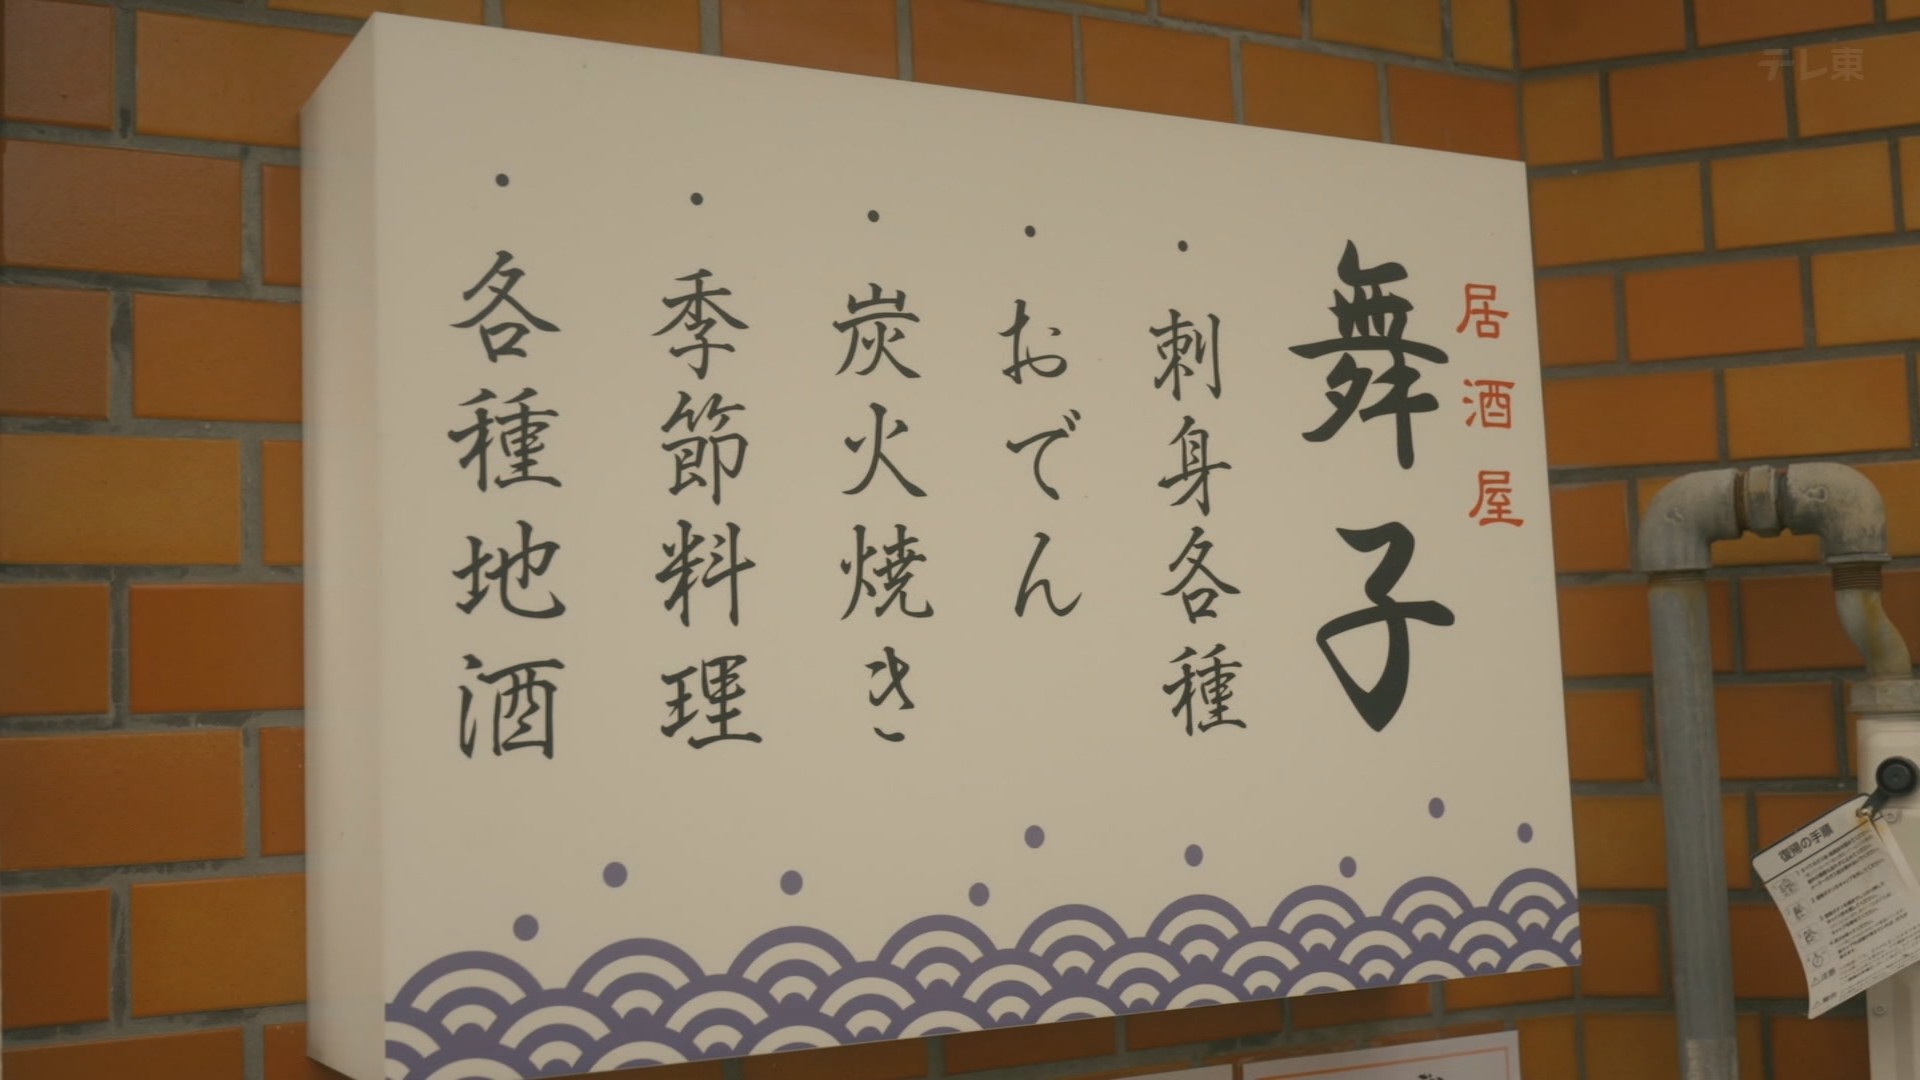 居酒屋
舞子
・刺身各種
・おでん
・炭火焼き
・季節料理
・各種地酒
テレ東
復帰の手順